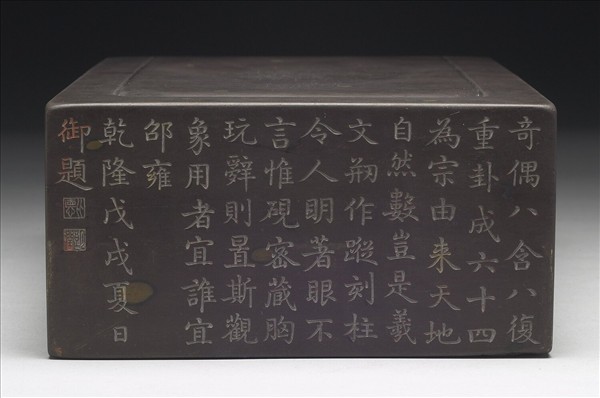 奇偶八含八復
重卦成六十四
為宗由來天地
自然數豈是羲
文刱作蹤刻柱
令人明著眼不
言惟硯密藏胸
玩辭則置斯觀
象用者宜誰宜
邵雍
乾隆戊戌夏日
御題